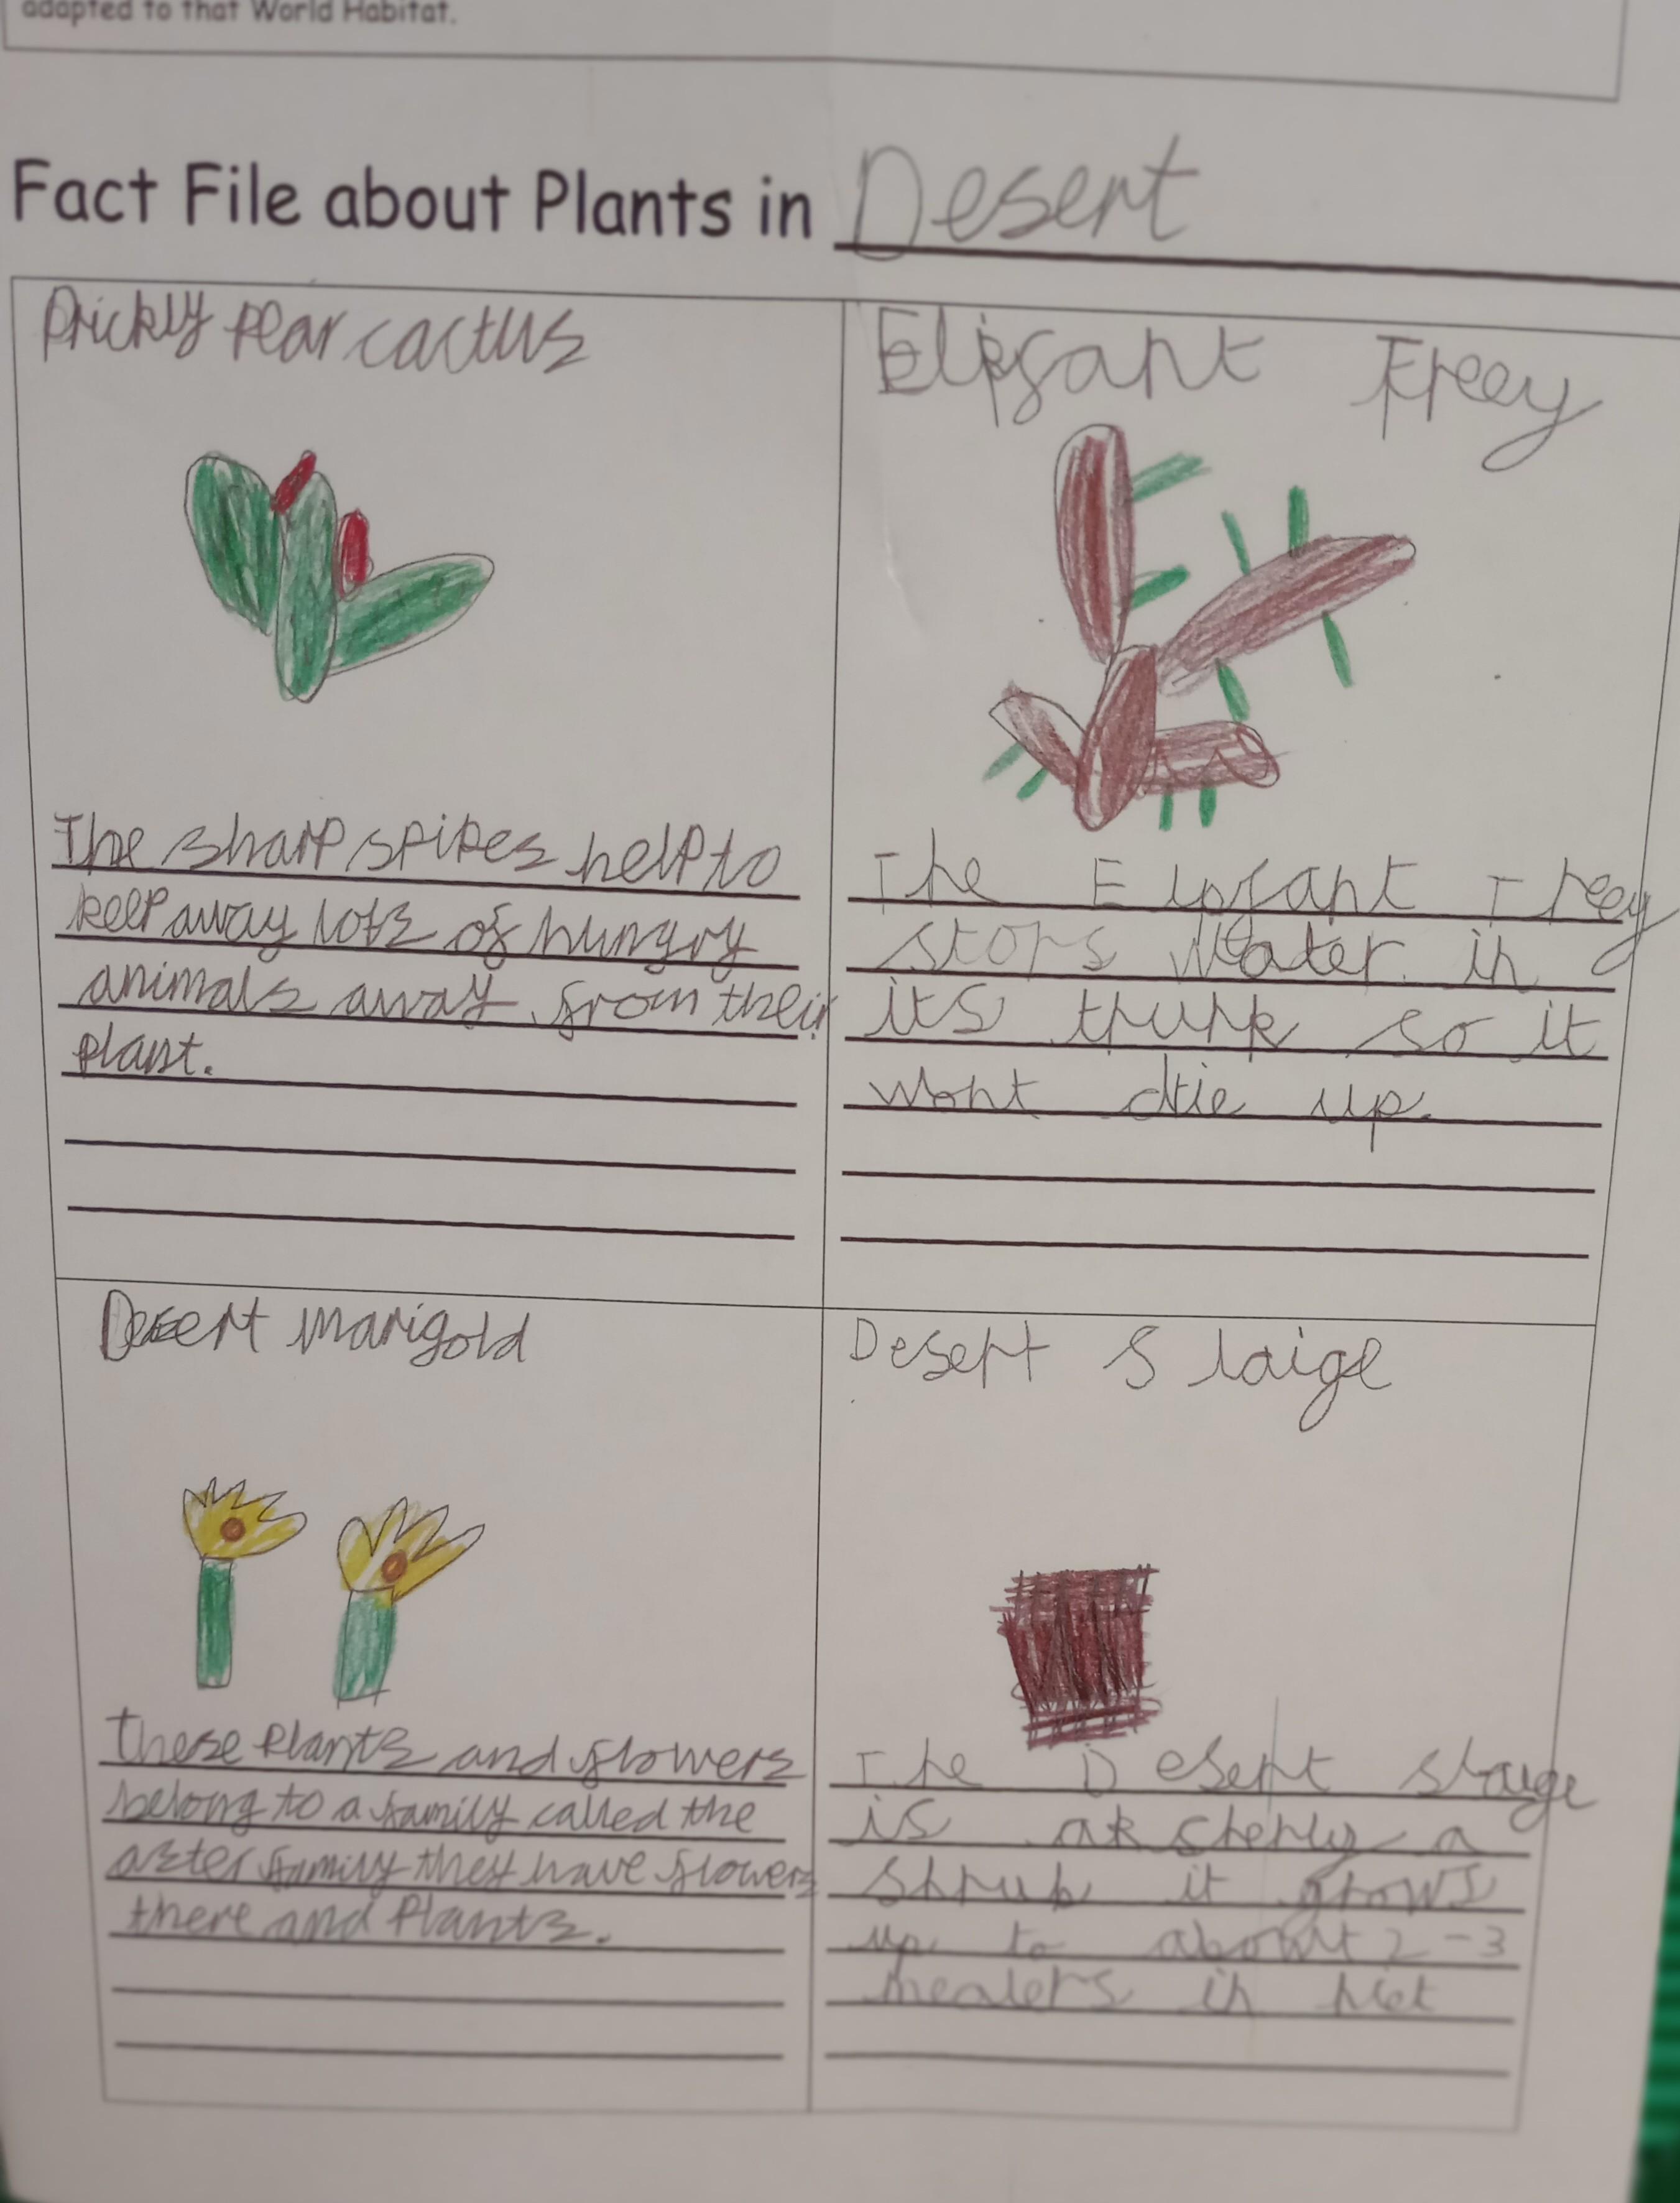 adapted to that World Habitat.
Fact File about Plants in Desert
Prickly pear cactus
The sharp spikes help to
keep away lots of hungry
animals away from their
plant.
Elefant Treey
The Elefant Treey
stors Water in
its trunk so it
wont drie up.
Desert marigold
These plants and flowers
belong to a family called the
aster family they have flowers
there and plants.
Desert Slaige
The Desert slaige
is aksherly a
shrub it grows
up to abowt 2-3
mealers in hiet